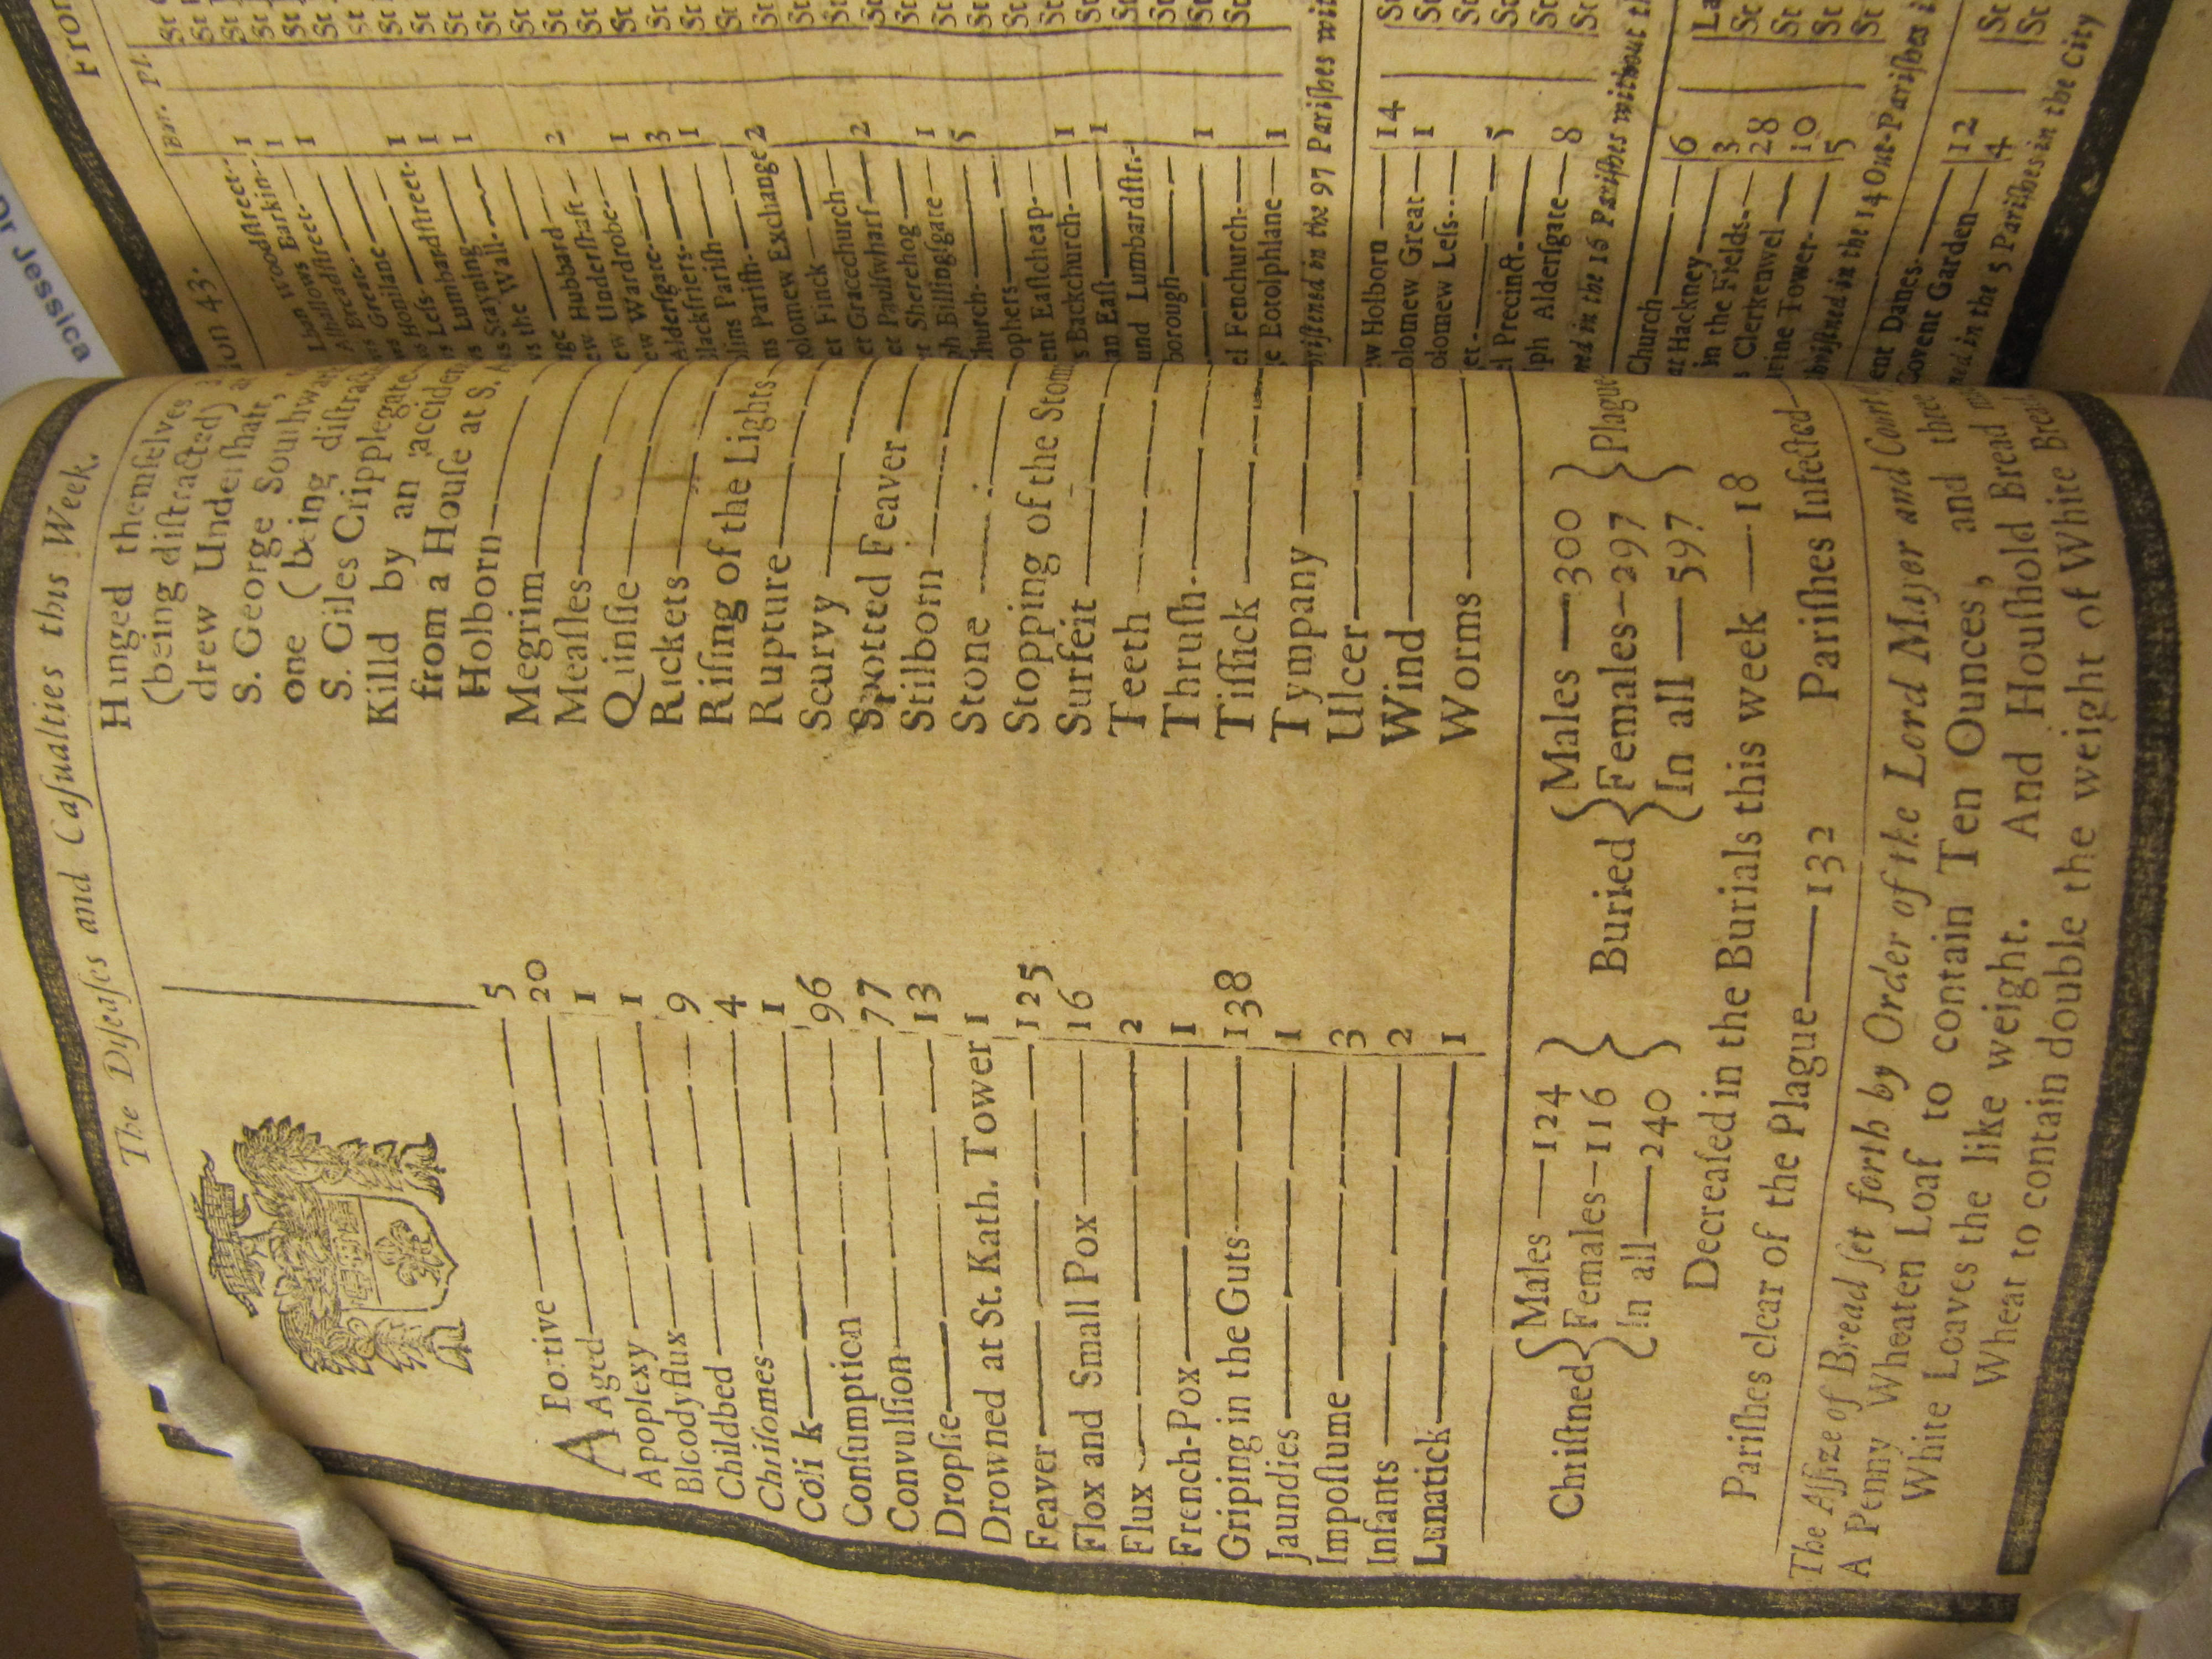 The Diſeaſes and Caſualties this Week.
APortive 5
Aged 20
Apoplexy 1
Bloodyflux 1
Childbed 9
Chriſomes 4
Colick 1
Conſumption 96
Convulſion 77
Dropſie 13
Drowned at St. Kath. Tower 1
Feaver 125
Flox and Small Pox 16
Flux 2
French-Pox 1
Griping in the Guts 138
Jaundies 1
Impoſtume 3
Infants 2
Lunatick 1
Hanged themſelves
(being diſtracted)
drew Underſhaft,
S. George Southwar
one (being diſtra
S. Giles Cripplegate
Killd by an acciden
from a Houſe at S. A
Holborn
Megrim
Meaſles
Quinſie
Rickets
Riſing of the Lights
Rupture
Scurvy
Spotted Feaver
Stilborn
Stone
Stopping of the Stom
Surfeit
Teeth
Thruſh
Tiſſick
Tympany
Ulcer
Wind
Worms
Chriſtned { Males 124 Females 116 In all 240 }
Buried { Males 300 Females 297 In all 597 } Plague
Decreaſed in the Burials this week 18
Pariſhes clear of the Plague 132 Pariſhes Infected
The Aſſize of Bread ſet forth by Order of the Lord Mayor and Court
A Penny Wheaten Loaf to contain Ten Ounces, and three
White Loaves the like weight. And Houſhold Bread
Wheat to contain double the weight of White Bread
Dr Jessica
Fron
don 43.
Bur. Pl.
Woodſtreet 1
Barkin 1
Breadſtreet 1
Great
Honilane 1
Leſs
Lumbardſtreet 1
Stayning 1
the Wall
Hubbard 2
Underſhaft
Wardrobe 1
Alderſgate 3
Blackfriers 1
ns Pariſh
ns Pariſh 2
olomew Exchange
Finck
et Gracechurch 2
et Paulſwharf
Sherehog 1
ph Billingſgate 5
church
ophers
ent Eaſtcheap 1
s Backchurch 1
an Eaſt
und Lumbardſtr.
borough 1
el Fenchurch
e Botolphlane 1
riſtened in the 97 Pariſhes wit
ew Holborn 14
olomew Great 1
olomew Leſs
et 5
l Precinct
lph Alderſgate 8
ned in the 16 Pariſhes without th
Church 6
at Hackney 3
in the Fields 28
s Clerkenwel 10
rine Tower 5
in the 14 Out-Pariſhes i
ent Danes 12
Covent Garden 4
ned in the 5 Pariſhes in the City